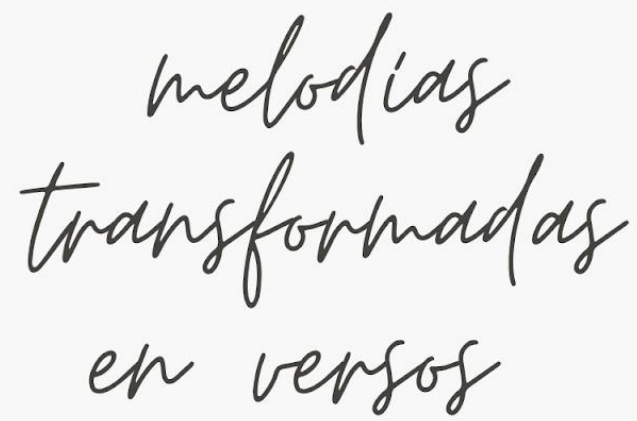 melodías
transformadas
en versos